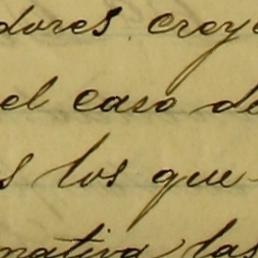 dores creye
el caso de
s los que
mativa las